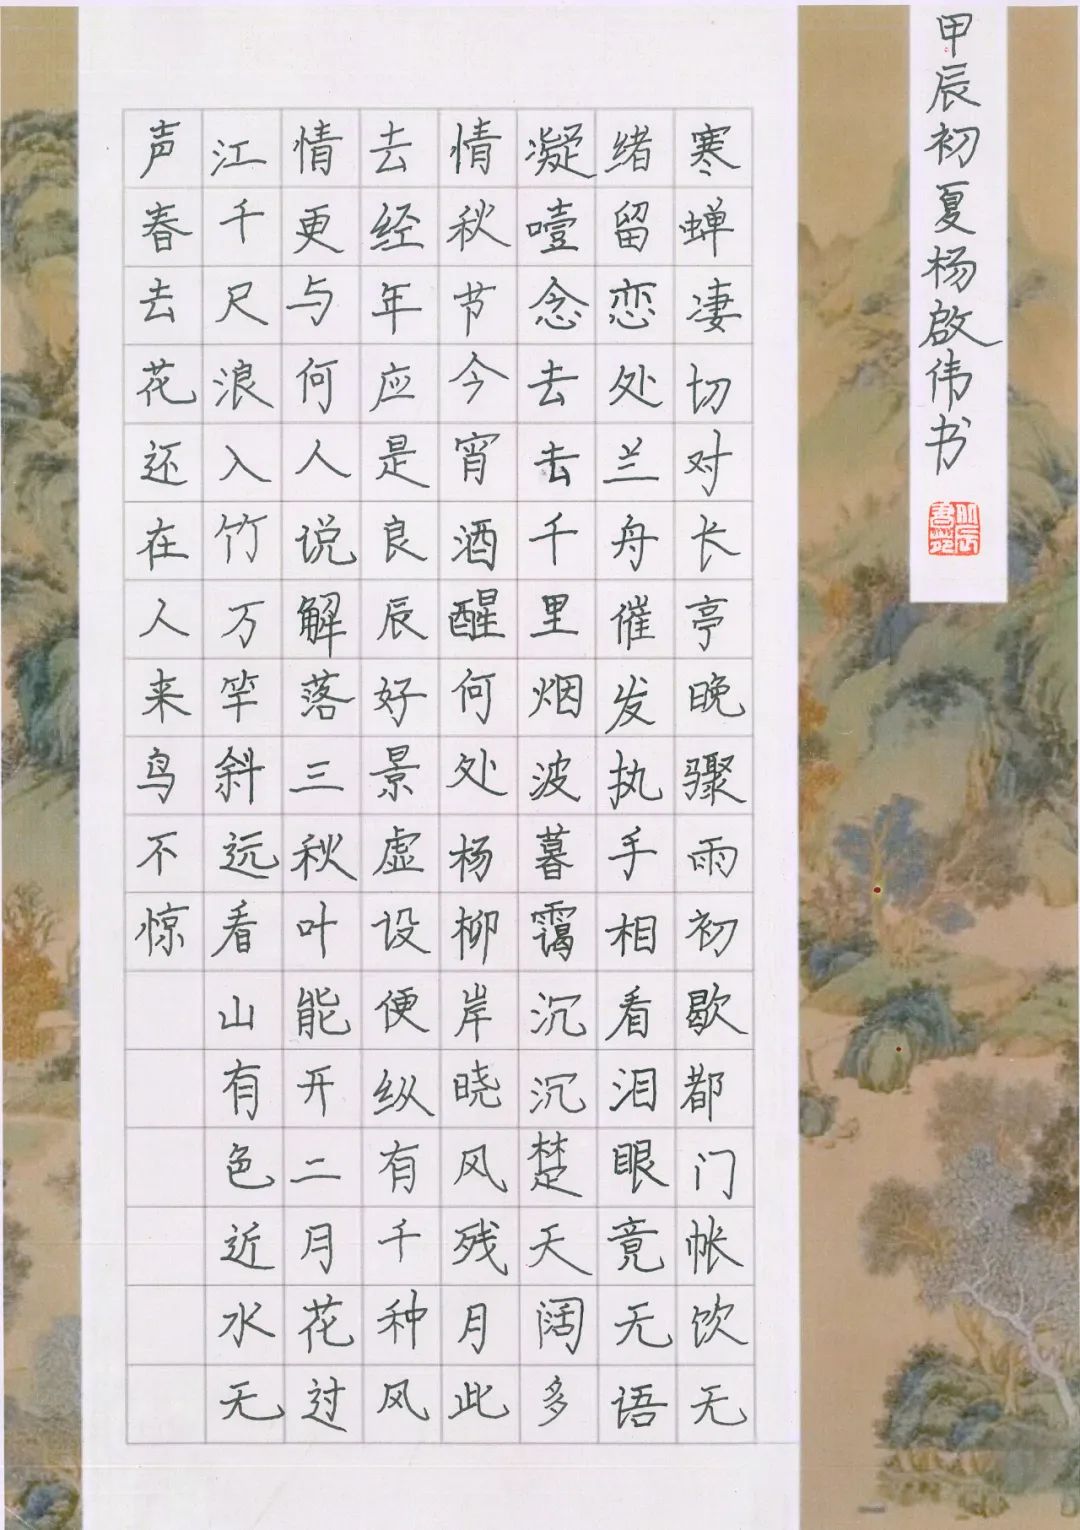 甲辰初夏杨啟伟书
寒蝉凄切对长亭晚骤雨初歇都门帐饮无
绪留恋处兰舟催发执手相看泪眼竟无语
凝噎念去去千里烟波暮霭沉沉楚天阔多
情秋节今宵酒醒何处杨柳岸晓风残月此
去经年应是良辰好景虚设便纵有千种风
情更与何人说解落三秋叶能开二月花过
江千尺浪入竹万竿斜远看山有色近水无
声春去花还在人来鸟不惊